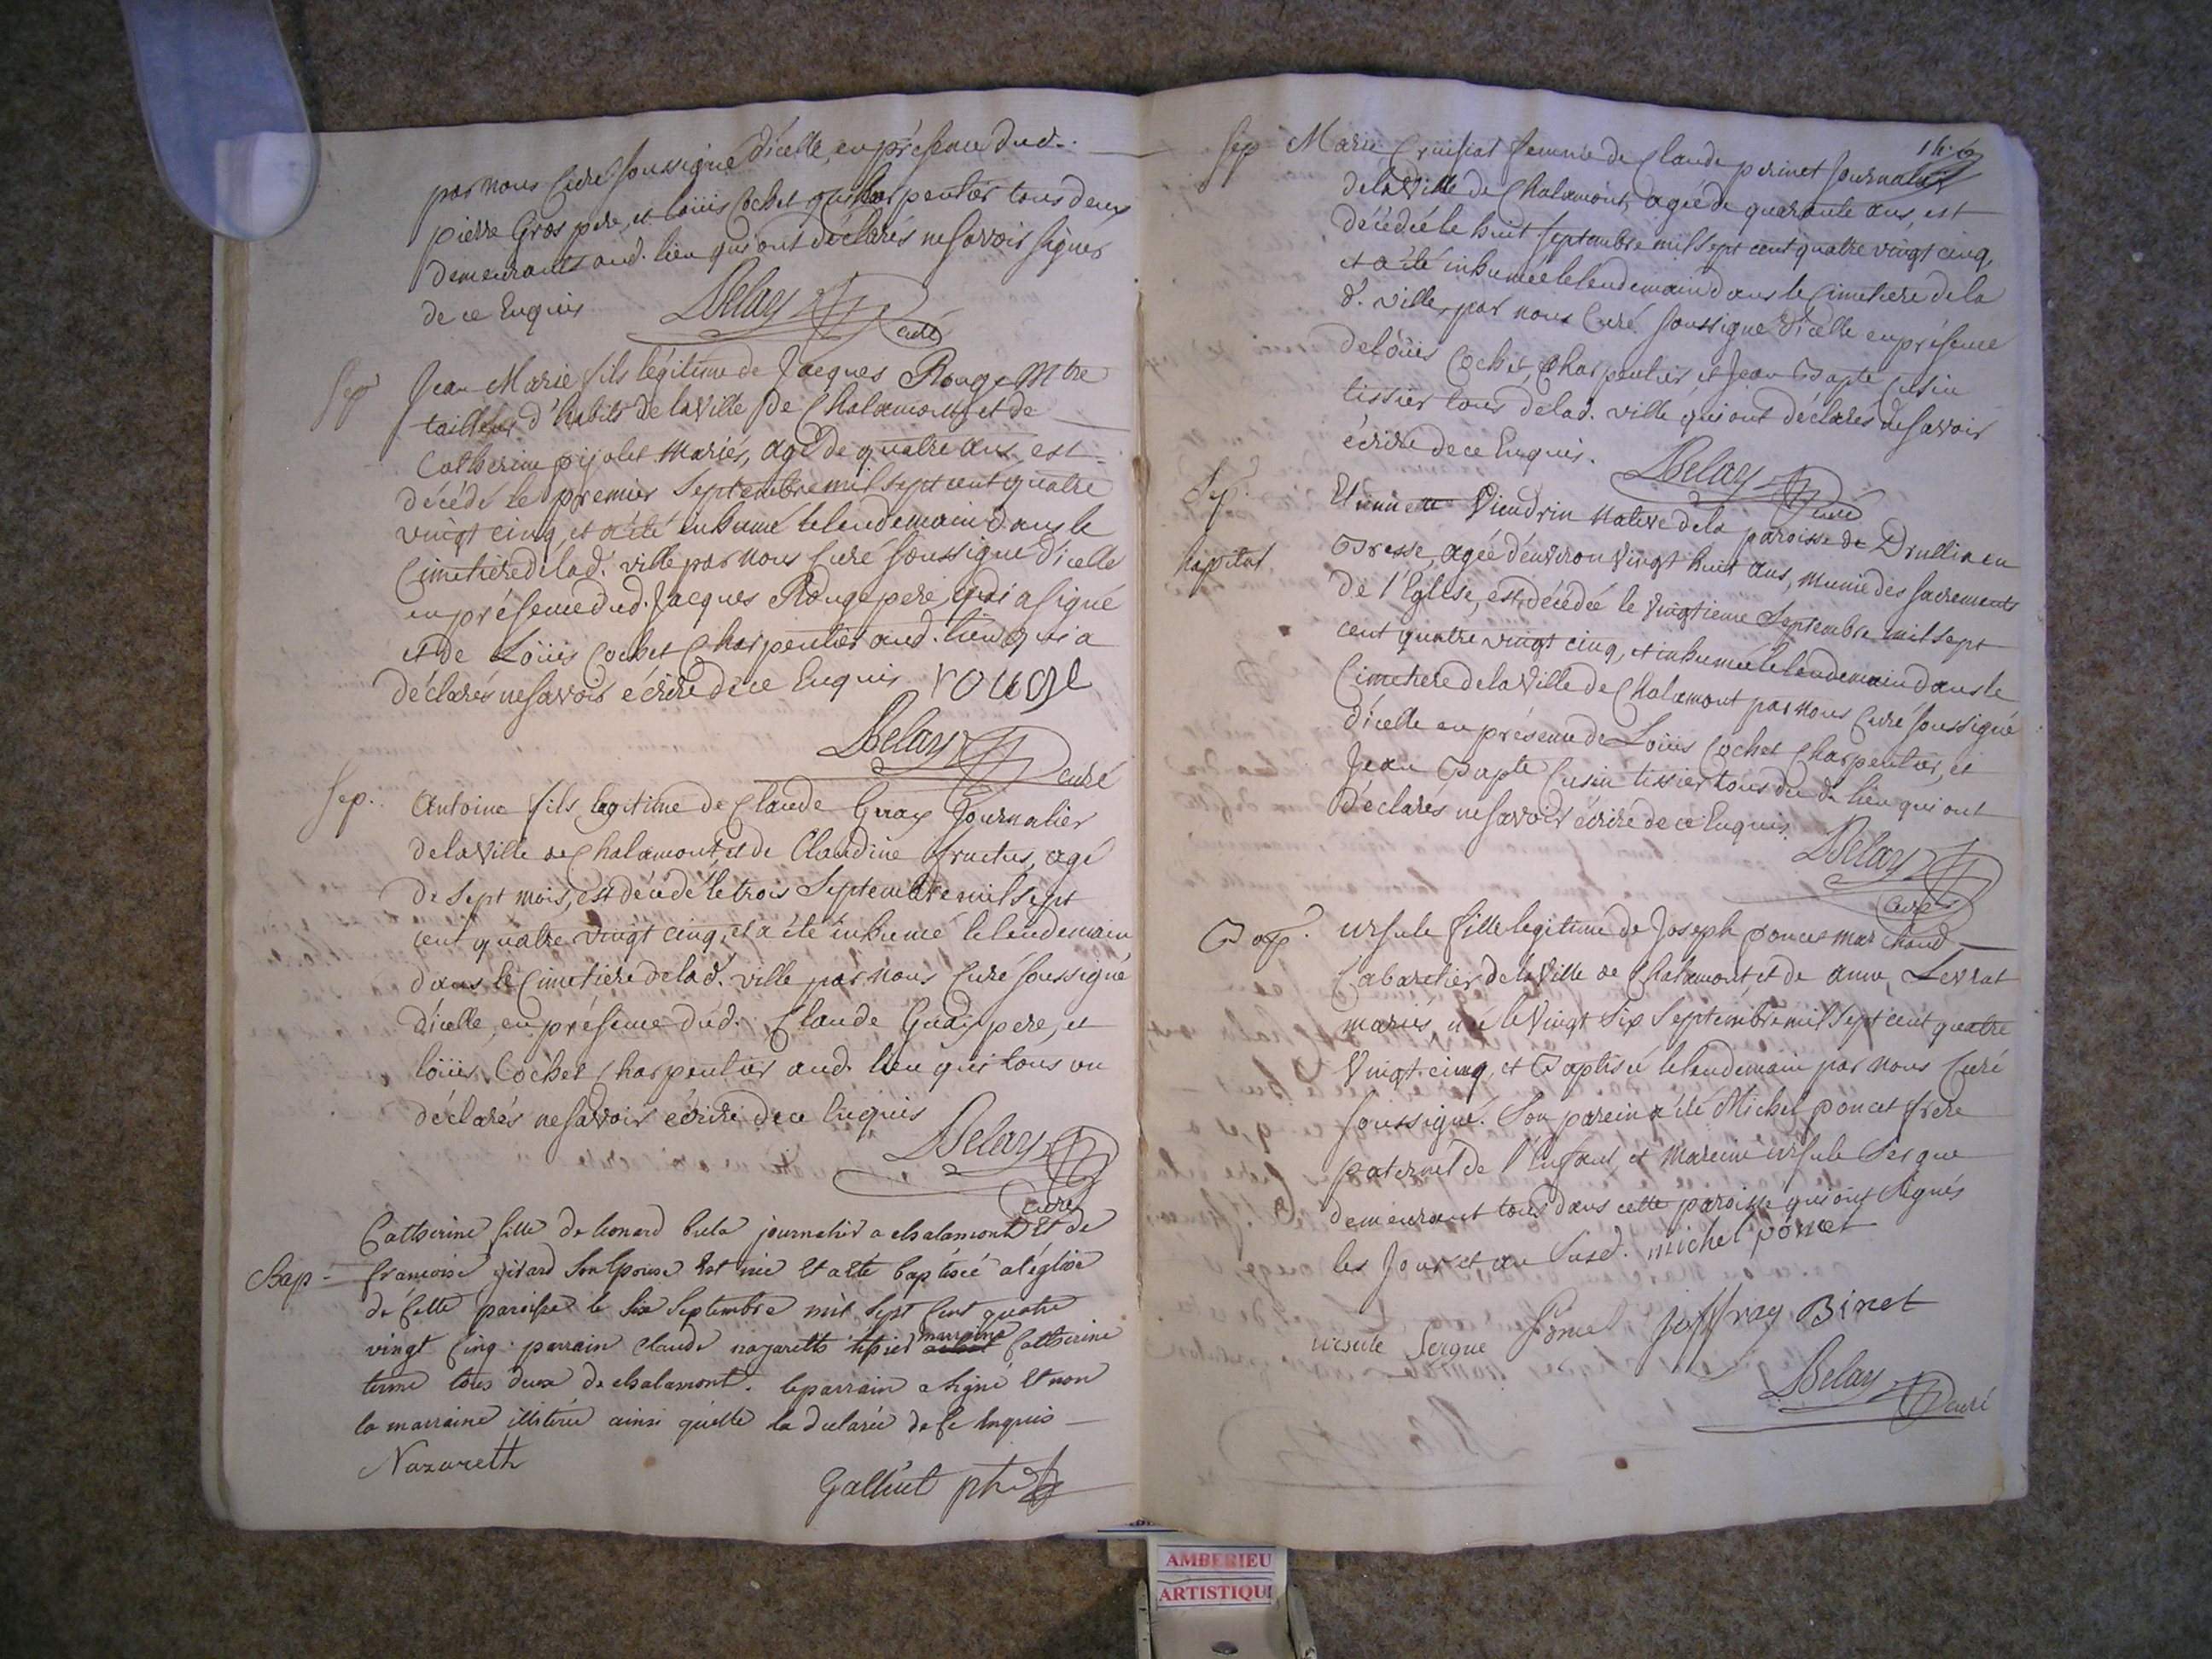 par nous Curé soussigné d'icelle, en présence dud.
pierre Gros pere, et loüis Cochet charpentier tous deux
demeurants aud. lieu qui ont déclarés ne savoir signer
de ce Enquis Delay
curé
Sep. Jean Marie fils légitime de Jacques Rouge Mtre
tailleur d'habits de la Ville de Chalamont et de
Catherine pijolet Mariés, agé de quatre ans est
décédé le premier Septembre mil sept cent quatre
vingt cinq, et a été inhumé le lendemain dans le
Cimetiere de lad. ville par nous Curé soussigné d'icelle
en présence dud. Jacques Rouge pere, qui a signé
et de Loüis Cochet Charpentier aud. lieu qui a
déclarés ne savoir écrire de ce Enquis rouge
Delay curé
Sep. Antoine fils legitime de Claude Guay Journalier
de la Ville de Chalamont, et de Claudine fructus, agé
de sept mois, est décédé le trois Septembre mil sept
cent quatre vingt cinq, et a été inhumé le lendemain
dans le Cimetiere de lad. ville par nous Curé soussigné
d'icelle, en présence dud. Claude Guay pere, et
loüis Cochet Charpentier aud. lieu qui tous on
déclarés ne savoir écrire de ce Enquis
Delay
Curé
Catherine fille de leonard bula journalier a chalamont Et de
Bap- francoise girard son Epouse Est née Et a été baptisée a l'églize
de Cette paroisse le six Septembre mil sept Cent quatre
vingt Cinq. parrain Claude nazareth tissier marraine Catherine
terme tous deux de chalamont. le parrain a signé Et non
la marraine illiterée ainsi qu'elle la declarée de ce Enquis
Nazareth
Galliut ptre
146
Sep Marie Cruisiat femme de Claude perinet Journalier
de la Ville de Chalamont, agée de quarante ans, est
décédée le huit septembre mil sept cent quatre vingt cinq,
et a été inhumée le lendemain dans le Cimetiere de la
d. ville, par nous Curé soussigné d'icelle en présence
de loüis Cochet, Charpentier, et Jean Bapte Cusin
tissier tous de lad. ville qui ont déclarés ne savoir
écrire de ce Enquis. Delay
curé
Sep. Etiennette Viendrin Native de la paroisse de Drullia en
hopital Bresse, agée d'environ Vingt huit ans, munie des sacrements
de l'Eglise, est décédée le Vingtieme Septembre mil sept
cent quatre vingt cinq, et inhumée le lendemain dans le
Cimetiere de la Ville de Chalamont par nous Curé soussigné
d'icelle en présence de Loüis Cochet Charpentier, et
Jean Bapte Cusin tissier tous du d. lieu qui ont
déclarés ne savoir écrire de ce Enquis.
Delay
Curé
Bap. Ursule fille legitime de Joseph poncet marchand
Cabaretier de la Ville de Chalamont et de anne Levrat
mariés, née le Vingt six Septembre mil sept cent quatre
Vingt cinq, et Baptisée le lendemain par nous Curé
soussigné. Son parein a été Michel poncet frere
paternel de l'Enfant, et mareine ursule Sergue
demeurant tous dans cette paroisse qui ont signés
les Jour et an susd. michel poncet
ursule Sergue Poncet joffray Binet
Delay curé
AMBERIEU
ARTISTIQU